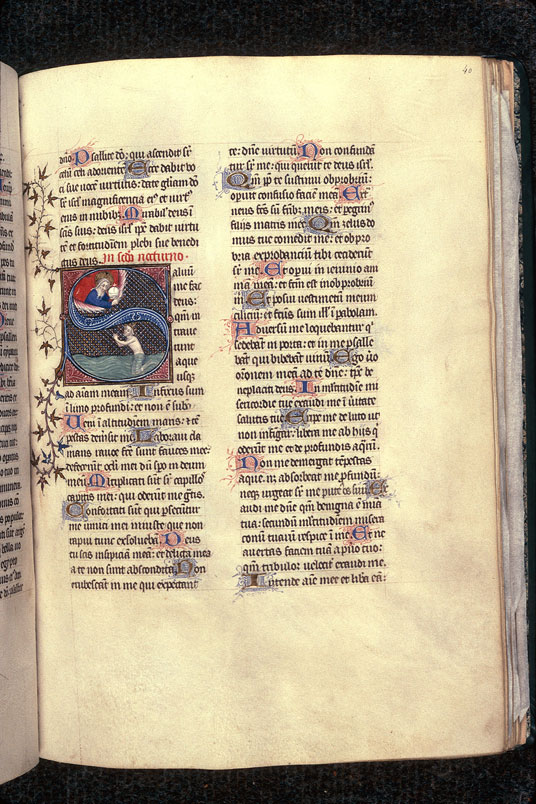 40
dño. Psallite dõ: qui ascendit sr̃
celũ celi ad oriente Ecce dabit vo
ci sue vocẽ virtutis: date gliam dõ
sr̃ isrl magnificencia eiꝰ et virtꝰ
eius in nubibꝫ Mirabil' deus ĩ
scis suis: deus isrl ip̃e dabit virtu
tẽ et fortitudinem plebi sue benedi
ctus deus. In scđo nocturno.
Saluũ
me fac
deus:
qm̃ in
traue
runt
aque
usqꝫ
ad aiam meam Infixus sum
ĩ limo profundi: et non ẽ subs̃
Veni ĩ altitudinem maris: et tẽ
pestas demersit me Laboraui cla
mans rauce fc̃e sunt fauces mee:
defecerunt oc̃li mei dũ spo in deum
meũ Multiplicati sũt sr̃ capillos
capitis mei: qui oderunt me gr̃tis.
Confortati sunt qui psecuti sũt
me inimici mei iniuste que non
rapui tunc exsoluebã Deus
tu scis insipienciã meã: et delicta mea
a te non sunt abscondita Non
erubescant in me qui expectant
te: dñe virtutũ. Non confundã
tur sr̃ me: qui querũt te deus isrl.
Qm̃ ꝓp̃ te sustinui obprobriũ:
opuit confusio faciẽ meã Ext̃
meus fc̃s sũ fr̃ibꝫ meis: et peg̃nꝰ
filiis matris mee Qm̃ zelus do
mus tue comedit me: et obpro
bria exprobanciũ tibi ceciderũt
sr̃ me. Et opui in ieiunio ani
mã meã: et fc̃m est in obprobriũ
m̃ Et posui vestimentũ meum
ciliciũ: et fc̃us sum illis ĩ pabolam.
Aduersũ me loquebantur q̃
sedebãt in porta: et in me psalle
bãt qui bibebãt vinũ Ego ũo
orõnem meã ad te dñe: tp̃s be
neplaciti deus. In mltitudine mi
sericordie tue exaudi me ĩ ũitate
salutis tue Eripe me de luto ut
non infigar: libera me ab hiis q̃
oderũt me et de profundis aq̃rũ.
Non me demergat tẽpestas
aque: neqꝫ absorbeat me ꝓfundũ:
neqꝫ urgeat sr̃ me puteꝰ os suũ Ex
audi me dñe qm̃ benigna ẽ mia
tua: secundũ mltitudinem misera
cionũ tuarũ respice ĩ me. Et ne
auertas faciem tuã a puero tuo:
qm̃ tribulor velociter exaudi me.
Intende aĩe mee et liba eã: